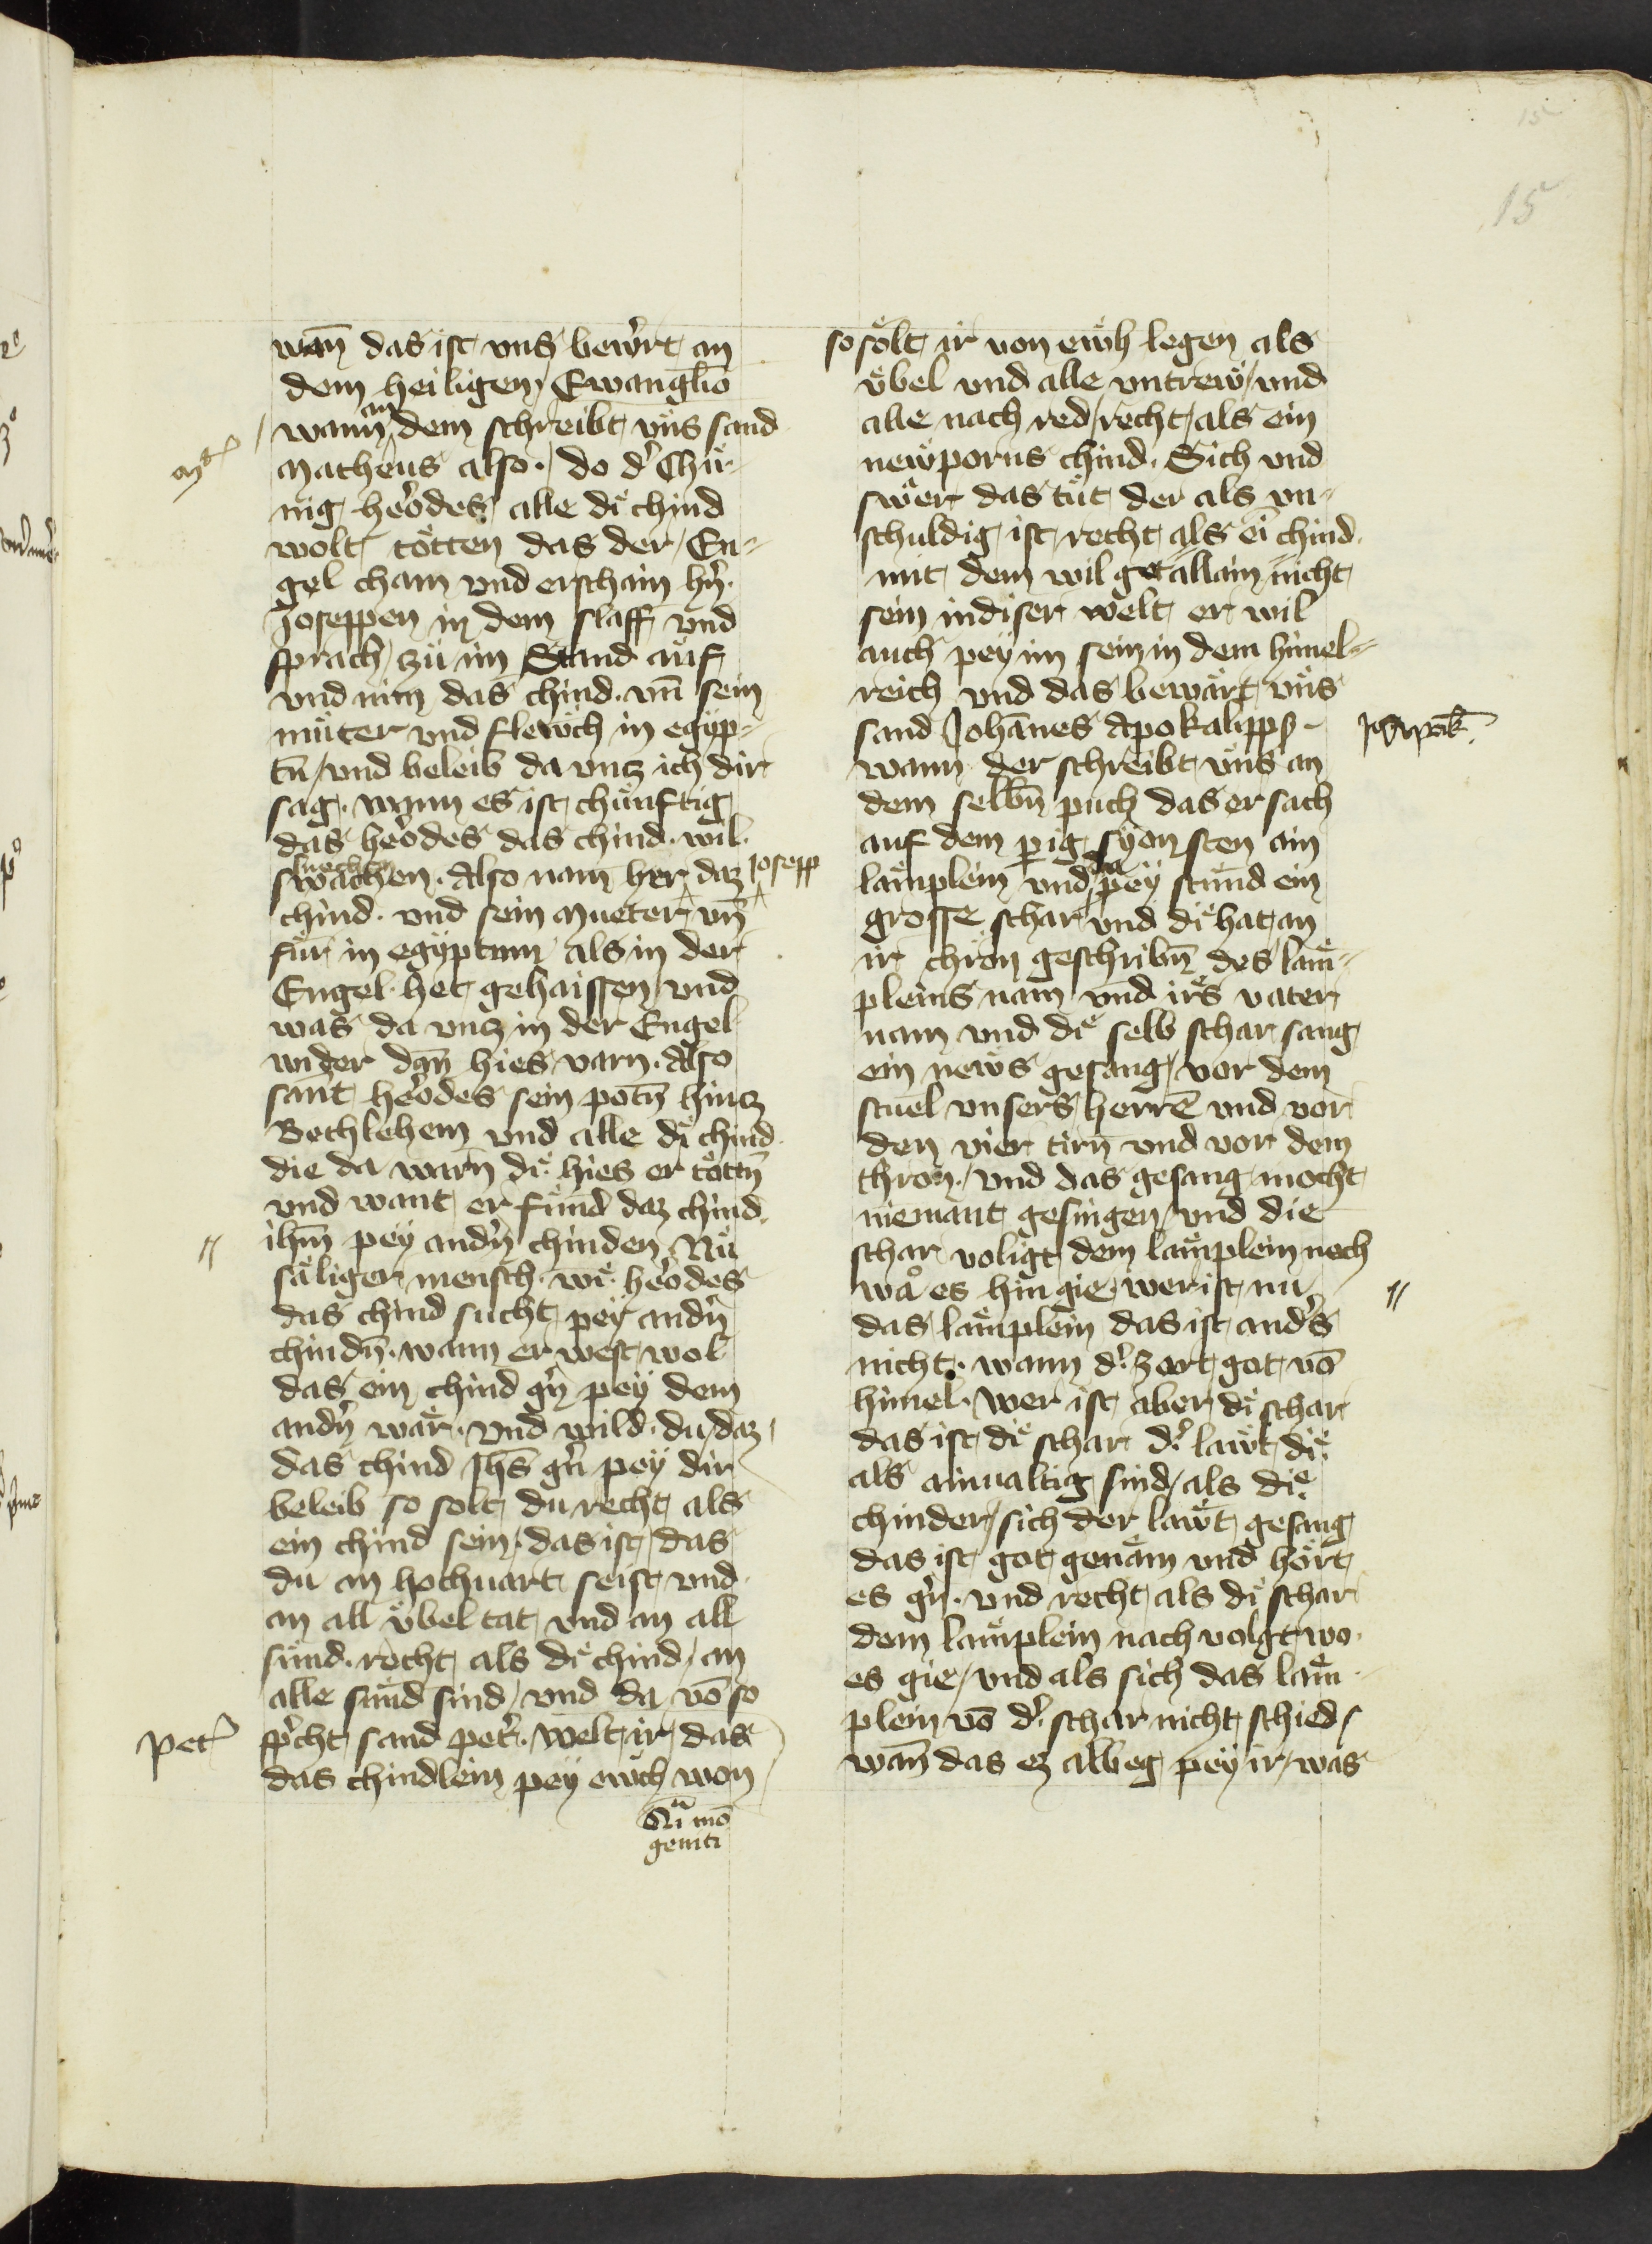 15
15
wan̄ das ist vns bewert an
dem heiligen Ewanglio
an
wann dem schreibt vns sand
Matheus also. do d' Chü-
nig herodes alle dï chind
wolt tötten das der En-
gel cham vnd erschain hn̄.
Joseppen in dem slaff vnd
sprach zü im Stand auf
vnd nim das chind. vn̄ sein
müter vnd flewch in egÿp-
tn̄ vnd beleib da vncz ich dir
sag. wann es ist chünftig
das herodes das chind. wil.
suechen
swachen. Also nam her daz
Josepp
chind. vnd sein Mueter vn̄
für in egÿptum als in der
Engel het gehaissen vnd
was da vncz in der Engel
wider dan̄ hies varn. Also
sant herodes sein potn̄ hincz
Bethlehem vnd alle dï chind
die da warn̄ dï hies er töttn̄
vnd want er fund daz chind
ihm̄ pey andn̄ chinden Nü
säliger mensch. wï herodes
das chind sucht pey andn̄
chindn̄. wann er west wol
das ein chind gn̄ pey dem
andn̄ wär. vnd wild du daz
das chind Jhs̄ gn̄ pey dir
beleib so solt du recht als
ein chind sein. das ist das
du an hochuart seist vnd
an all vbel tat vnd an all
sünd. recht als dï chind an
alle sünd sind vnd da vō so
Pet'
sp'cht sand pet'. Welt ir das
das chindlein pey ewch won
Qi mō
geniti
so sölt ir von ewh legen als
vbel vnd alle vntrew vnd
alle nach red recht als ein
newporns chind. Sich vnd
swer das tüt der als vn-
schuldig ist recht als eī chind.
mit dem wil got allain nicht
sein in diser welt er wil
auch pey im sein in dem himel-
reich vnd das bewärt vns
sand Johānes Apokalipps.
wann der schreibt vns an
dem selbn̄ puch das er sach
auf dem pig sÿon sten ain
da
lämplein vnd pey stund ein
grosse schar vnd dï hat an
ir chron geschribn̄ des läm-
pleins nam vnd irs vater
nam vnd dï selb schar sang
ein news gesang vor dem
stuel vnsers herrē vnd vor
den vier tirn̄ vnd vor dem
thron. vnd das gesang mocht
niemant gesingen vnd die
schar voligt dem lämplein nach
wa es hin gie. wer ist nu
das lämplein das ist and's
nicht. wann d' zart got vō
himel. Wer ist aber dï schar
das ist dï schar d' lawt dï
als ainualtig sind als dï
chinder sich der lawt gesang
das ist got genäm vnd hört
es gn̄. vnd recht als dï schar
dem lämplein nach volgt wo
es gie vnd als sich das läm
plein vō d' schar nicht schied
wan̄ das ez albeg pey ir was